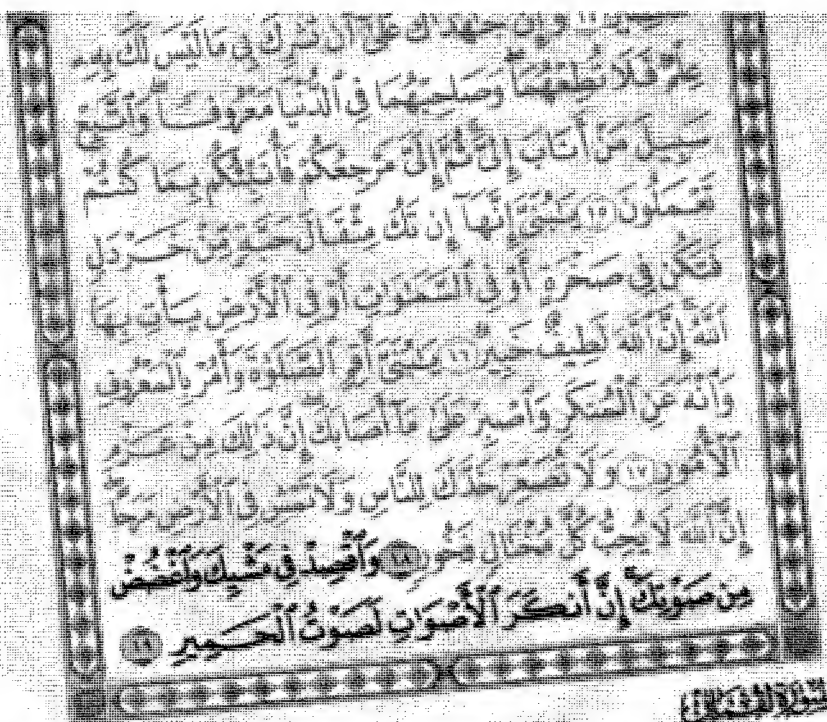 ١٤ وَإِن جَٰهَدَاكَ عَلَىٰٓ أَن تُشْرِكَ بِى مَا لَيْسَ لَكَ بِهِۦ
عِلْمٌ فَلَا تُطِعْهُمَا ۖ وَصَاحِبْهُمَا فِى ٱلدُّنْيَا مَعْرُوفًا ۖ وَٱتَّبِعْ
سَبِيلَ مَنْ أَنَابَ إِلَىَّ ۚ ثُمَّ إِلَىَّ مَرْجِعُكُمْ فَأُنَبِّئُكُم بِمَا كُنتُمْ
تَعْمَلُونَ ١٥ يَٰبُنَىَّ إِنَّهَآ إِن تَكُ مِثْقَالَ حَبَّةٍ مِّنْ خَرْدَلٍ
فَتَكُن فِى صَخْرَةٍ أَوْ فِى ٱلسَّمَٰوَٰتِ أَوْ فِى ٱلْأَرْضِ يَأْتِ بِهَا
ٱللَّهُ ۚ إِنَّ ٱللَّهَ لَطِيفٌ خَبِيرٌ ١٦ يَٰبُنَىَّ أَقِمِ ٱلصَّلَوٰةَ وَأْمُرْ بِٱلْمَعْرُوفِ
وَٱنْهَ عَنِ ٱلْمُنكَرِ وَٱصْبِرْ عَلَىٰ مَآ أَصَابَكَ ۖ إِنَّ ذَٰلِكَ مِنْ عَزْمِ
ٱلْأُمُورِ ١٧ وَلَا تُصَعِّرْ خَدَّكَ لِلنَّاسِ وَلَا تَمْشِ فِى ٱلْأَرْضِ مَرَحًا ۖ
إِنَّ ٱللَّهَ لَا يُحِبُّ كُلَّ مُخْتَالٍ فَخُورٍ ١٨ وَٱقْصِدْ فِى مَشْيِكَ وَٱغْضُضْ
مِن صَوْتِكَ ۚ إِنَّ أَنكَرَ ٱلْأَصْوَٰتِ لَصَوْتُ ٱلْحَمِيرِ ١٩
سُورَةُ لُقْمَان